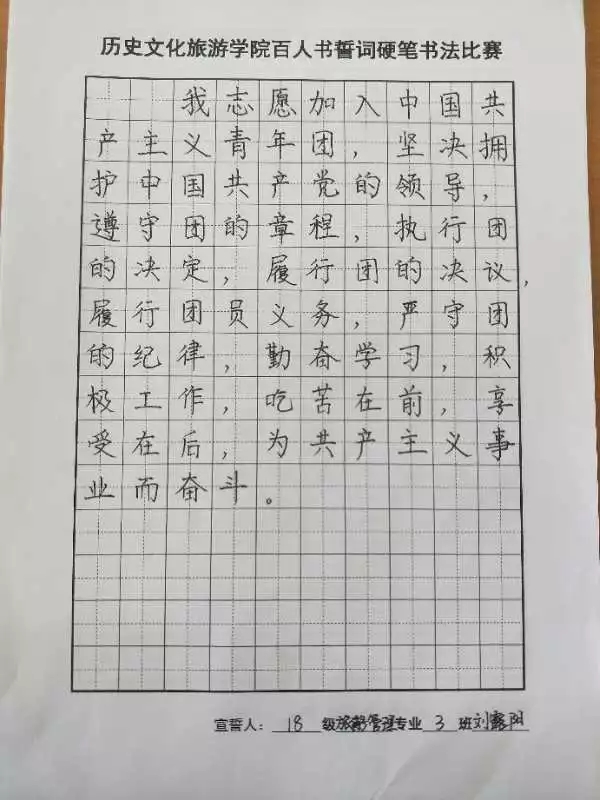 历史文化旅游学院百人书誓词硬笔书法比赛
我志愿加入中国共
产主义青年团，坚决拥
护中国共产党的领导，
遵守团的章程，执行团
的决定，履行团的决议，
履行团员义务，严守团
的纪律，勤奋学习，积
极工作，吃苦在前，享
受在后，为共产主义事
业而奋斗。
宣誓人：18级旅游管理专业3班刘露阳